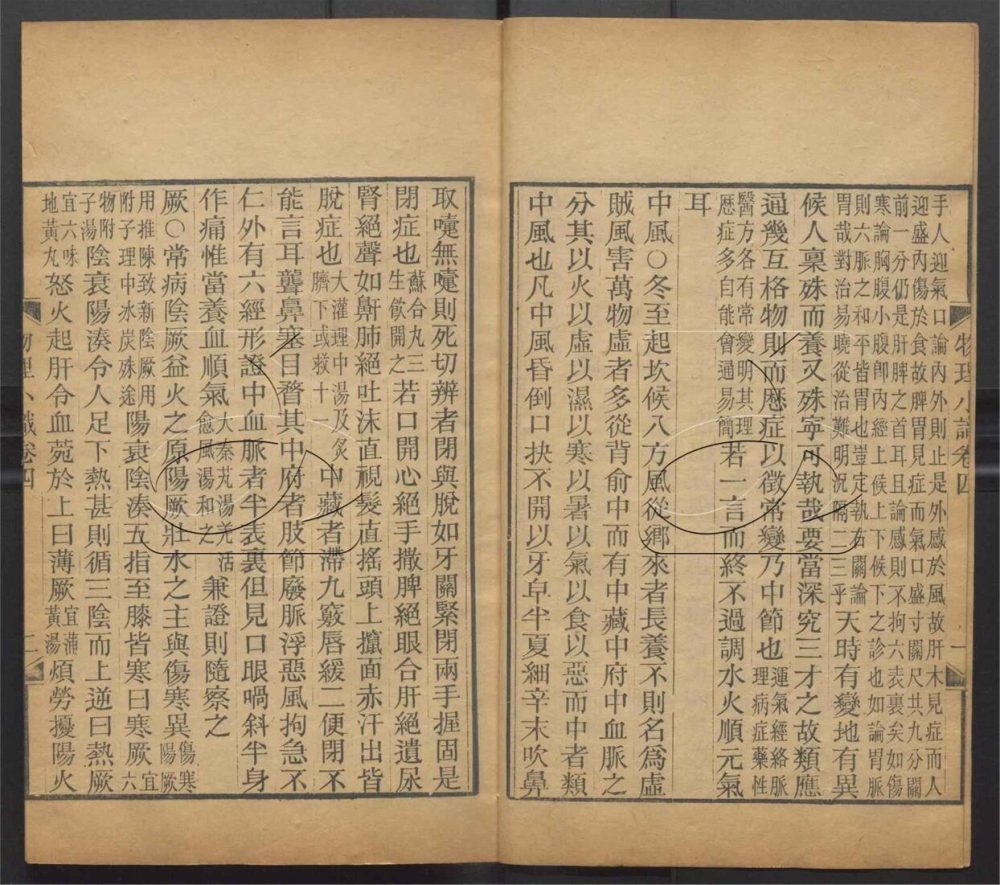 手人迎氣口論內外則止是外感於風故肝木見症而人
迎盛內傷於食故脾胃見症而氣口盛寸關尺共九分關
前一分仍是肝脾之首耳且論感則不拘六表裏矣如傷
寒論胸腹小腹卽內經上候上下候下之診也如論胃脈
則六脈之和平皆胃也豈定執右關論
胃哉對治易曉從治難明沉隔二三乎天時有變地有異
候人稟殊而養又殊寧可執哉要當深究三才之故類應
通幾互格物則而歷症以徵常變乃中節也運氣經絡脈
理病症藥性
醫方各有常變明其理
歷症多自能會通易簡若一言而終不過調水火順元氣
耳
中風〇冬至起坎候八方風從鄉來者長養不則名爲虛
賊風害萬物虛者多從背俞中而有中藏中府中血脈之
分其以火以虛以濕以寒以暑以氣以食以惡而中者類
中風也凡中風昏倒口抉不開以牙皁半夏細辛末吹鼻
物理小識卷四
一
取嚏無嚏則死切辨者閉與脫如牙關緊閉兩手握固是
閉症也蘇合丸三
生飲開之若口開心絕手撒脾絕眼合肝絕遺尿
腎絕聲如鼾肺絕吐沫直視髮直搖頭上攛面赤汗出皆
脫症也大灌理中湯及灸
臍下或救十一中藏者滯九竅唇緩二便閉不
能言耳聾鼻塞目瞀其中府者肢節廢脈浮惡風拘急不
仁外有六經形證中血脈者半表裏但見口眼喎斜半身
作痛惟當養血順氣大秦艽湯羌活
愈風湯和之兼證則隨察之
厥〇常病陰厥益火之原陽厥壯水之主與傷寒異傷寒
陽厥
用推陳致新陰厥用
附子理中冰炭殊途陽衰陰湊五指至膝皆寒曰寒厥宜
六
物附
子湯陰衰陽湊令人足下熱甚則循三陰而上逆曰熱厥
宜六味
地黃丸怒火起肝令血菀於上曰薄厥宜蒲
黃湯煩勞擾陽火
物理小識卷四
二